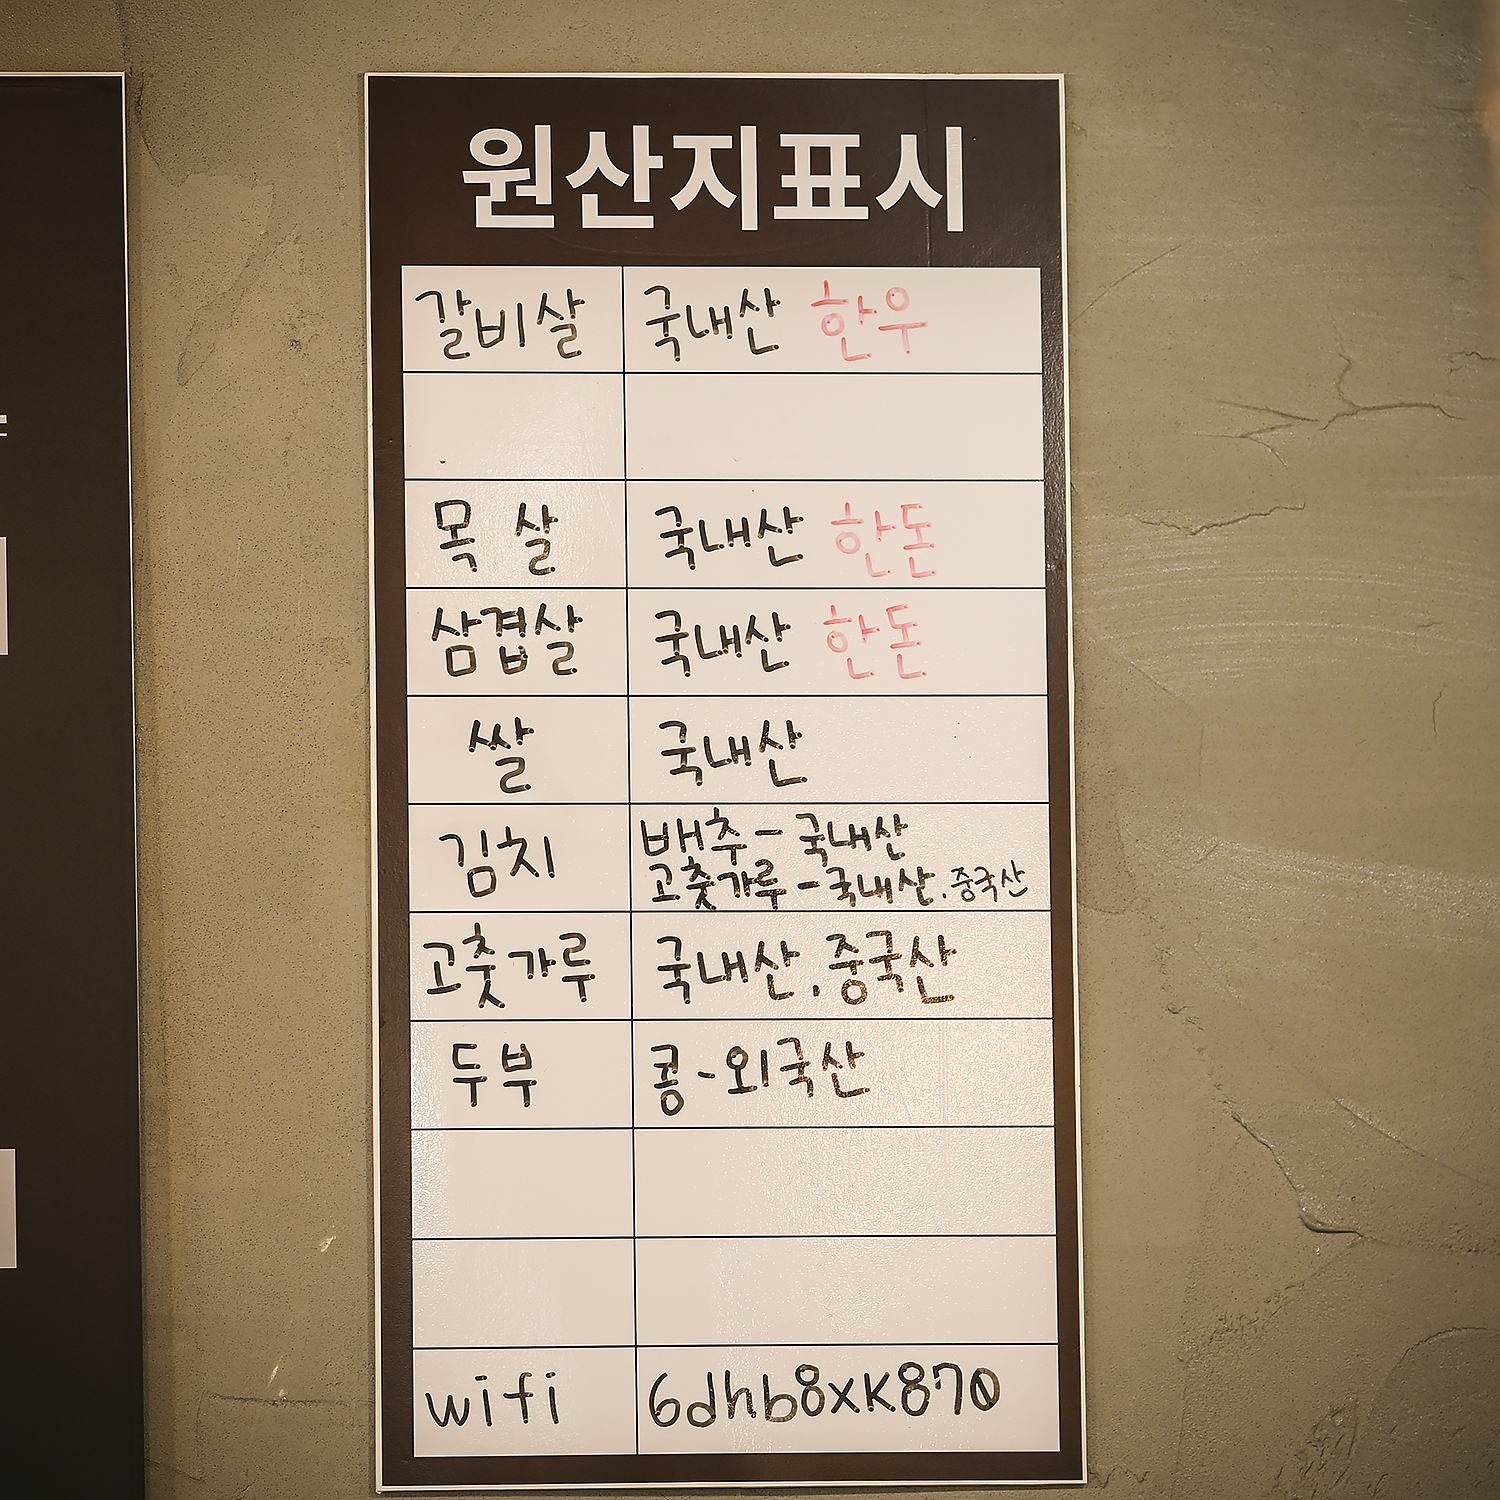 원산지표시
갈비살 국내산 한우
목살 국내산 한돈
삼겹살 국내산 한돈
쌀 국내산
김치 배추-국내산
고춧가루-국내산.중국산
고춧가루 국내산.중국산
두부 콩-외국산
wifi 6dhb8xk870